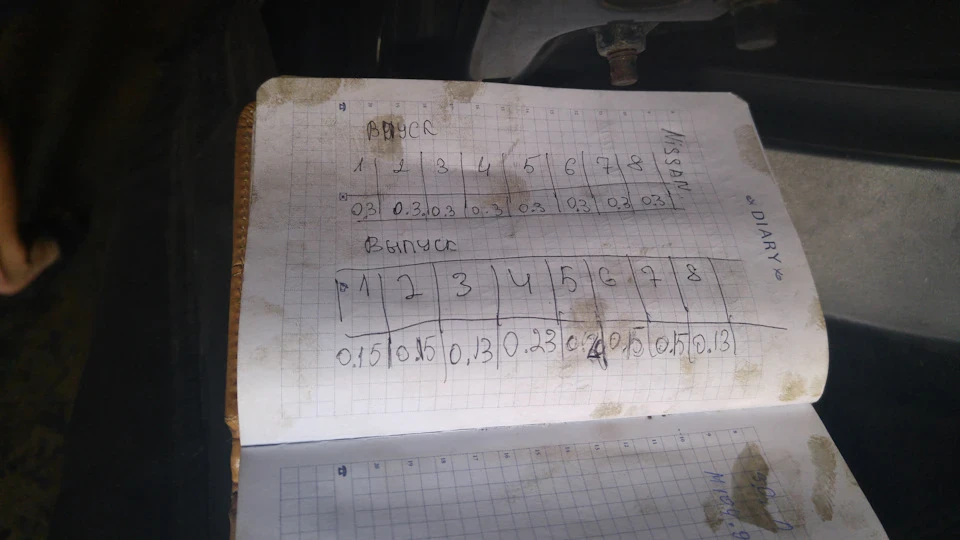 NISSAN
DIARY
ВПУСК
1 2 3 4 5 6 7 8
0.3 0.3 0.3 0.3 0.3 0.3 0.3 0.3
ВЫПУСК
1 2 3 4 5 6 7 8
0.15 0.15 0.13 0.23 0.15 0.15 0.13